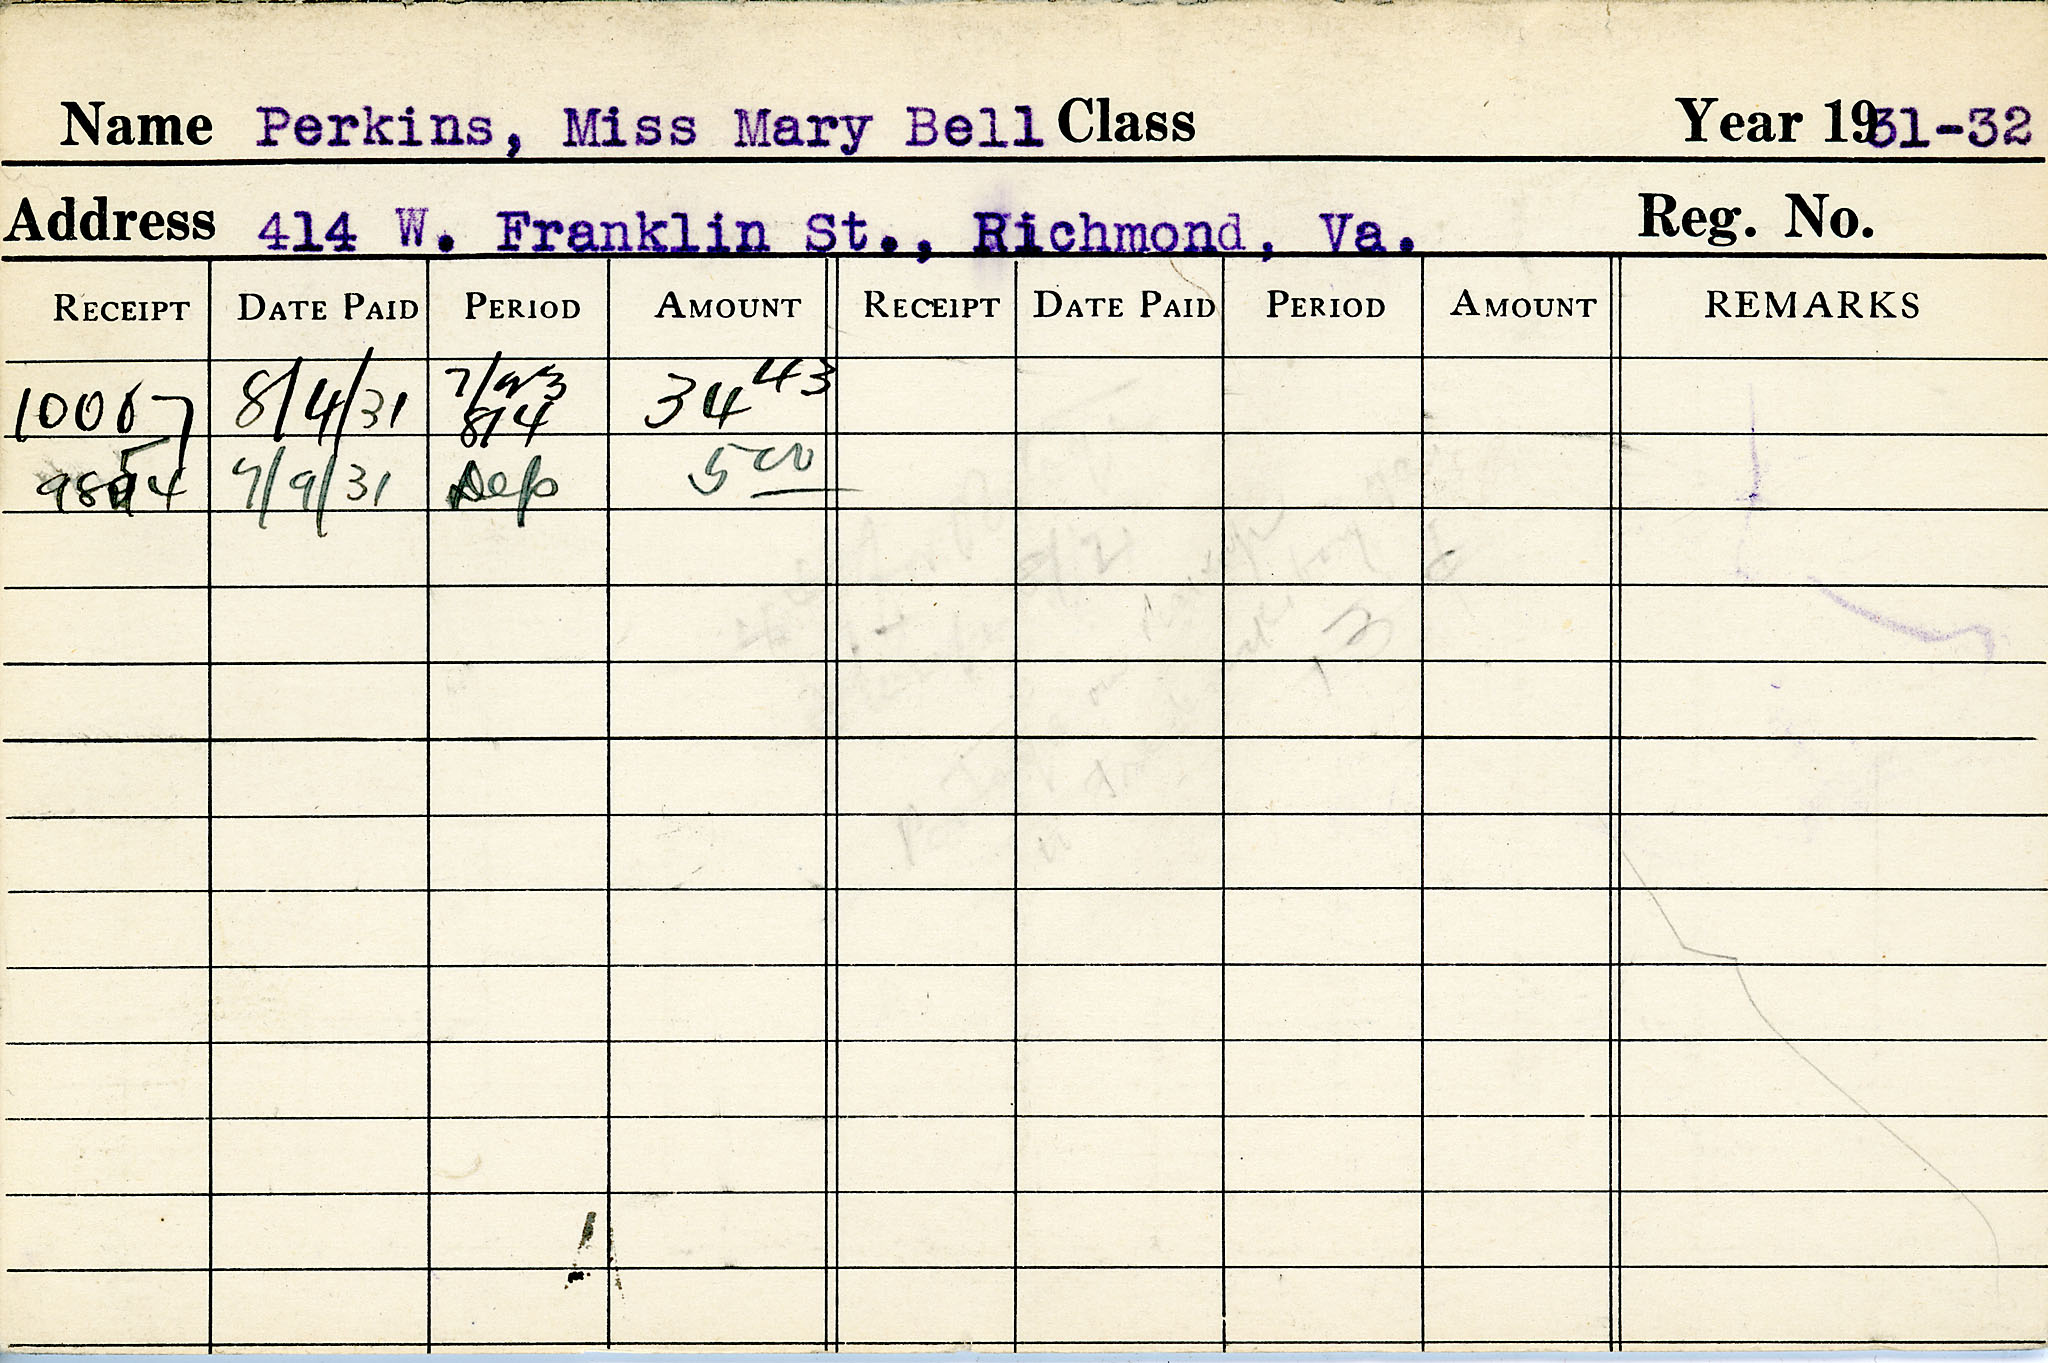 Name Perkins, Miss Mary Bell Class Year 1931-32
Address 414 W. Franklin St., Richmond, Va. Reg. No.
RECEIPT DATE PAID PERIOD AMOUNT RECEIPT DATE PAID PERIOD AMOUNT REMARKS
10067 8/4/31 8/4 34 43
7/9/31 Dep 5 00